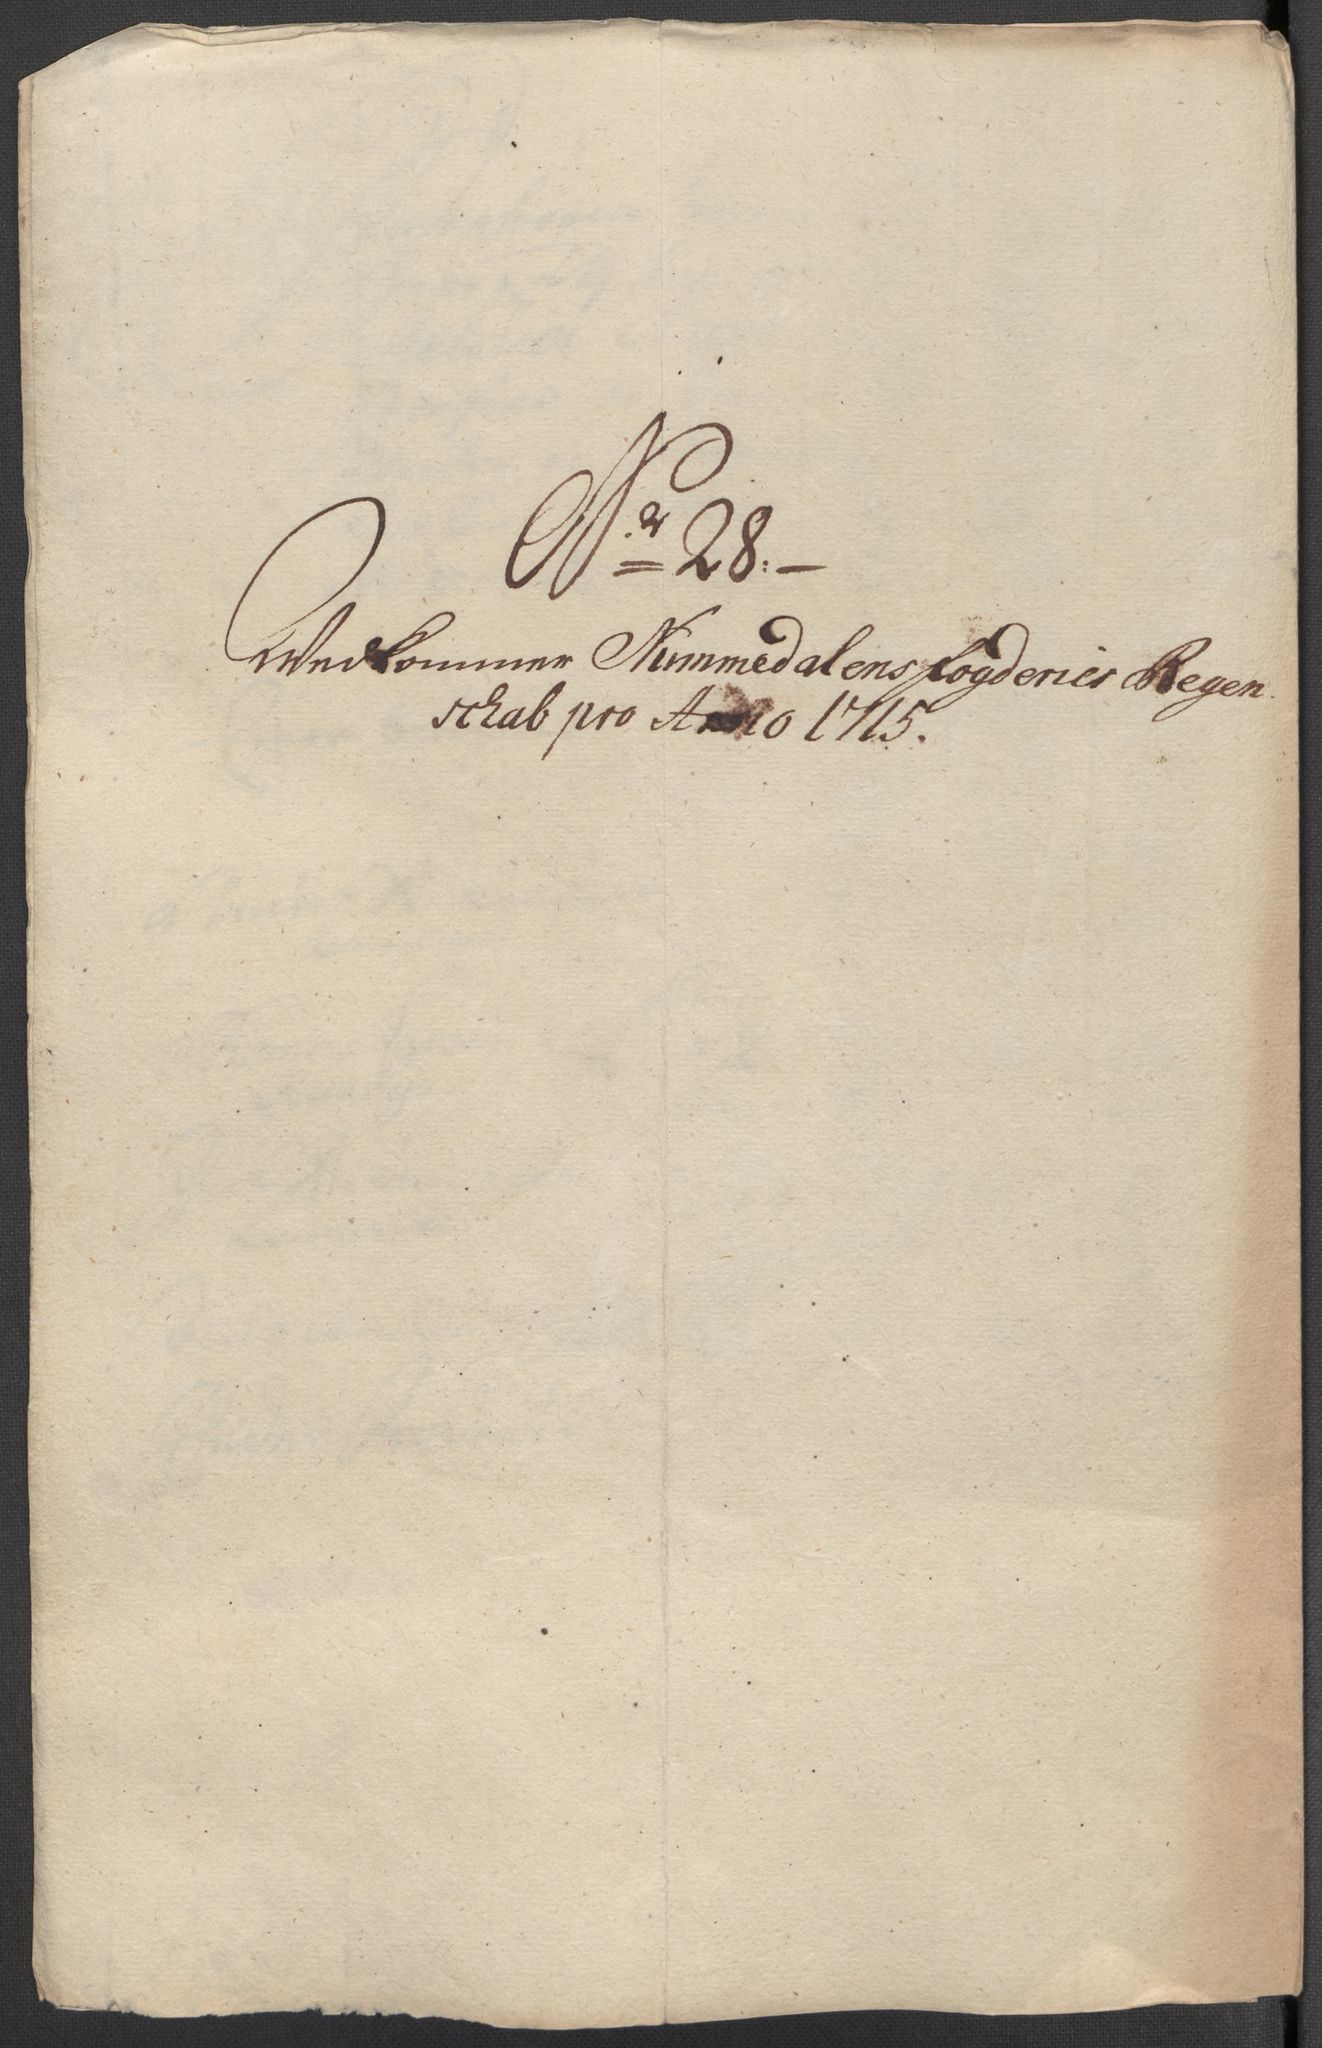 N.r 28:-
Vedkommer Nummedalens fogderies Regen
schab pro Anno 1715.